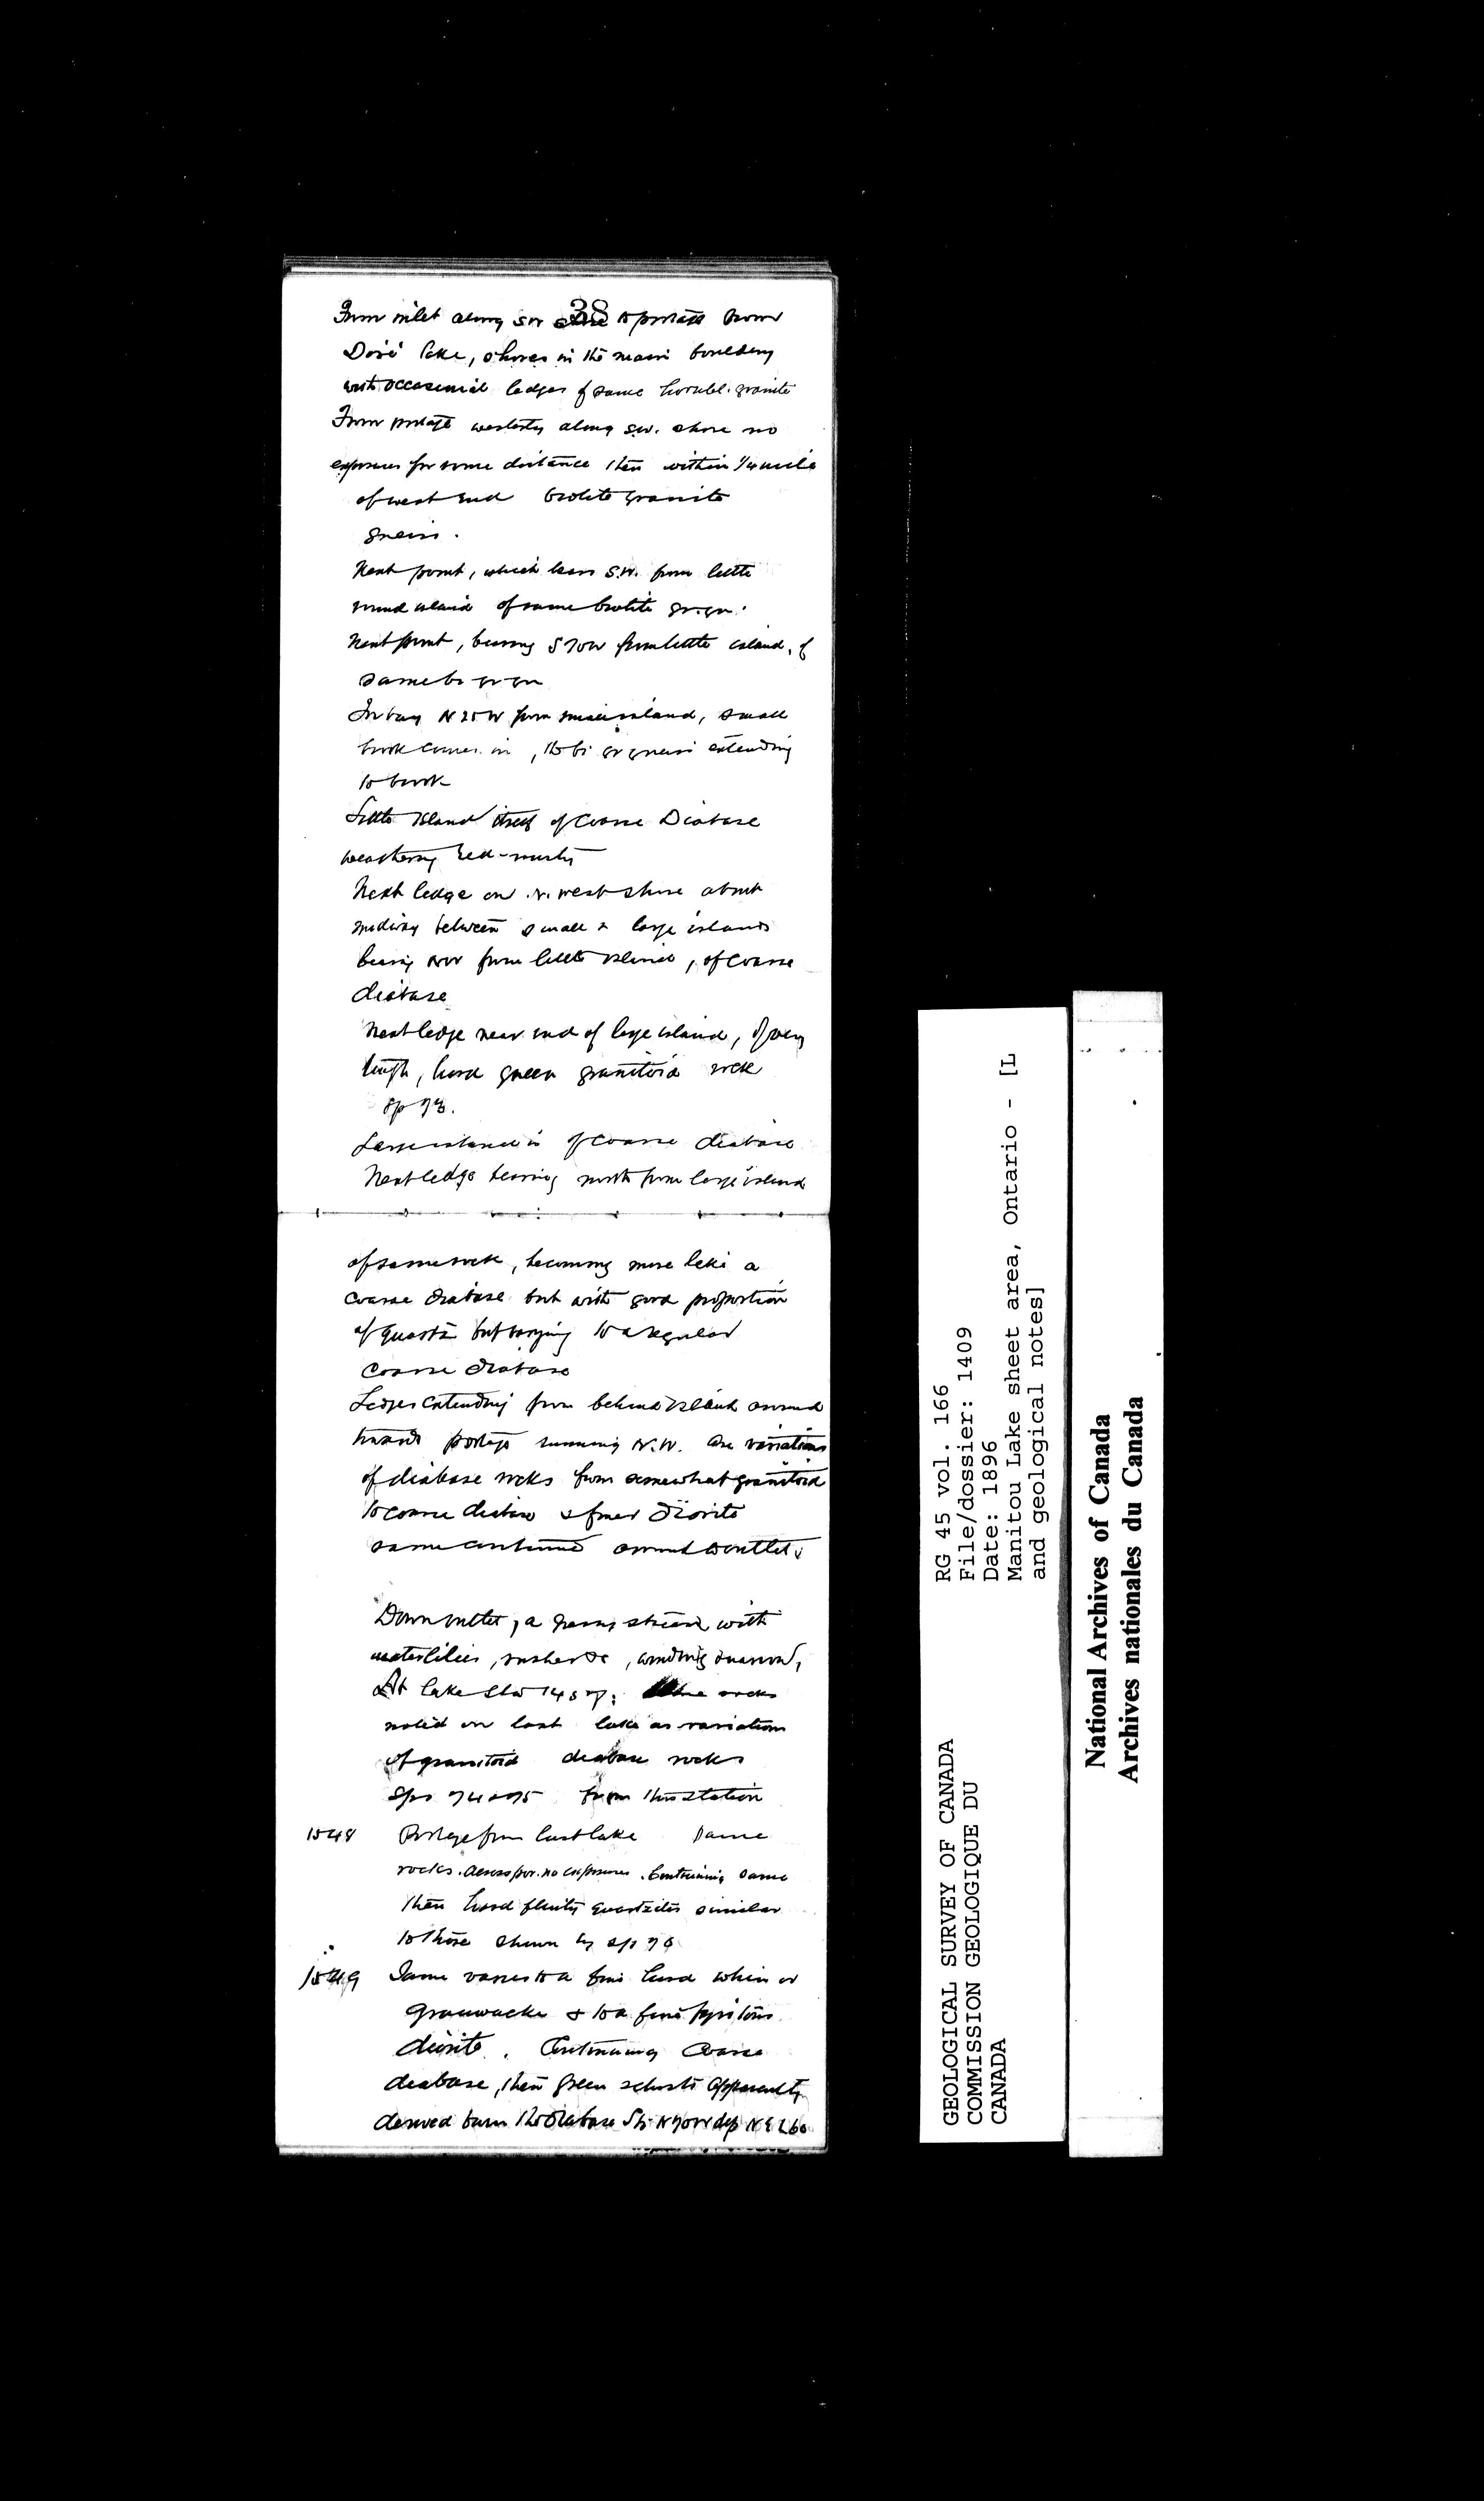 38
From inlet along SW shore to portage from
Doré lake, shores in the main bouldery
with occasional ledges of same hornbl. granite
From portage westerly along S.W. shore no
exposures for some distance then within 1/4 mile
of west end biotite granite
gneiss.
Next point, which bears S.W. from little
round island of same biotite gr. gn.
Next point, bearing S 70 W from little island, of
same bi gr gn
In bay N 25 W from small island, small
brook comes in, the bi gr gneiss extending
to brook
Little Island itself of coarse Diabase
weathering red-rusty
Next ledge on N. west shore about
midway between small & large islands
bearing NW from little island, of coarse
diabase
Next ledge near end of large island, of very
tough, hard green granitoid rock
Sp 73.
Large island is of coarse diabase
Next ledge bearing north from large island
of same rock, becoming more like a
coarse diabase but with good proportion
of quartz but varying to a regular
coarse diabase
Ledges extending from behind island around
towards portage running N.W. are variations
of diabase rocks from somewhat granitoid
to coarse diabase & finer diorite
same continued around to outlet.
Down outlet, a grassy stream with
waterlilies, rushes &c, winding & narrow,
At lake Stn 1487: the rocks
noted on last lake as variations
of granitoid diabase rocks
Sps 74 & 75 from this station
1548 Portage from last lake same
rocks. Across por. no exposures. Continuing same
then hard flinty quartzites similar
to those shown by sp 76
1549 Same varies to a fine hard whin or
Grauwacke & to a fine pyritous
diorite. Continuing coarse
diabase, then green schists apparently
derived from the diabase Str N 70 W dip N E L 60
RG 45 vol. 166
File/dossier: 1409
Date: 1896
Manitou Lake sheet area, Ontario - [L
and geological notes]
GEOLOGICAL SURVEY OF CANADA
COMMISSION GEOLOGIQUE DU
CANADA
National Archives of Canada
Archives nationales du Canada